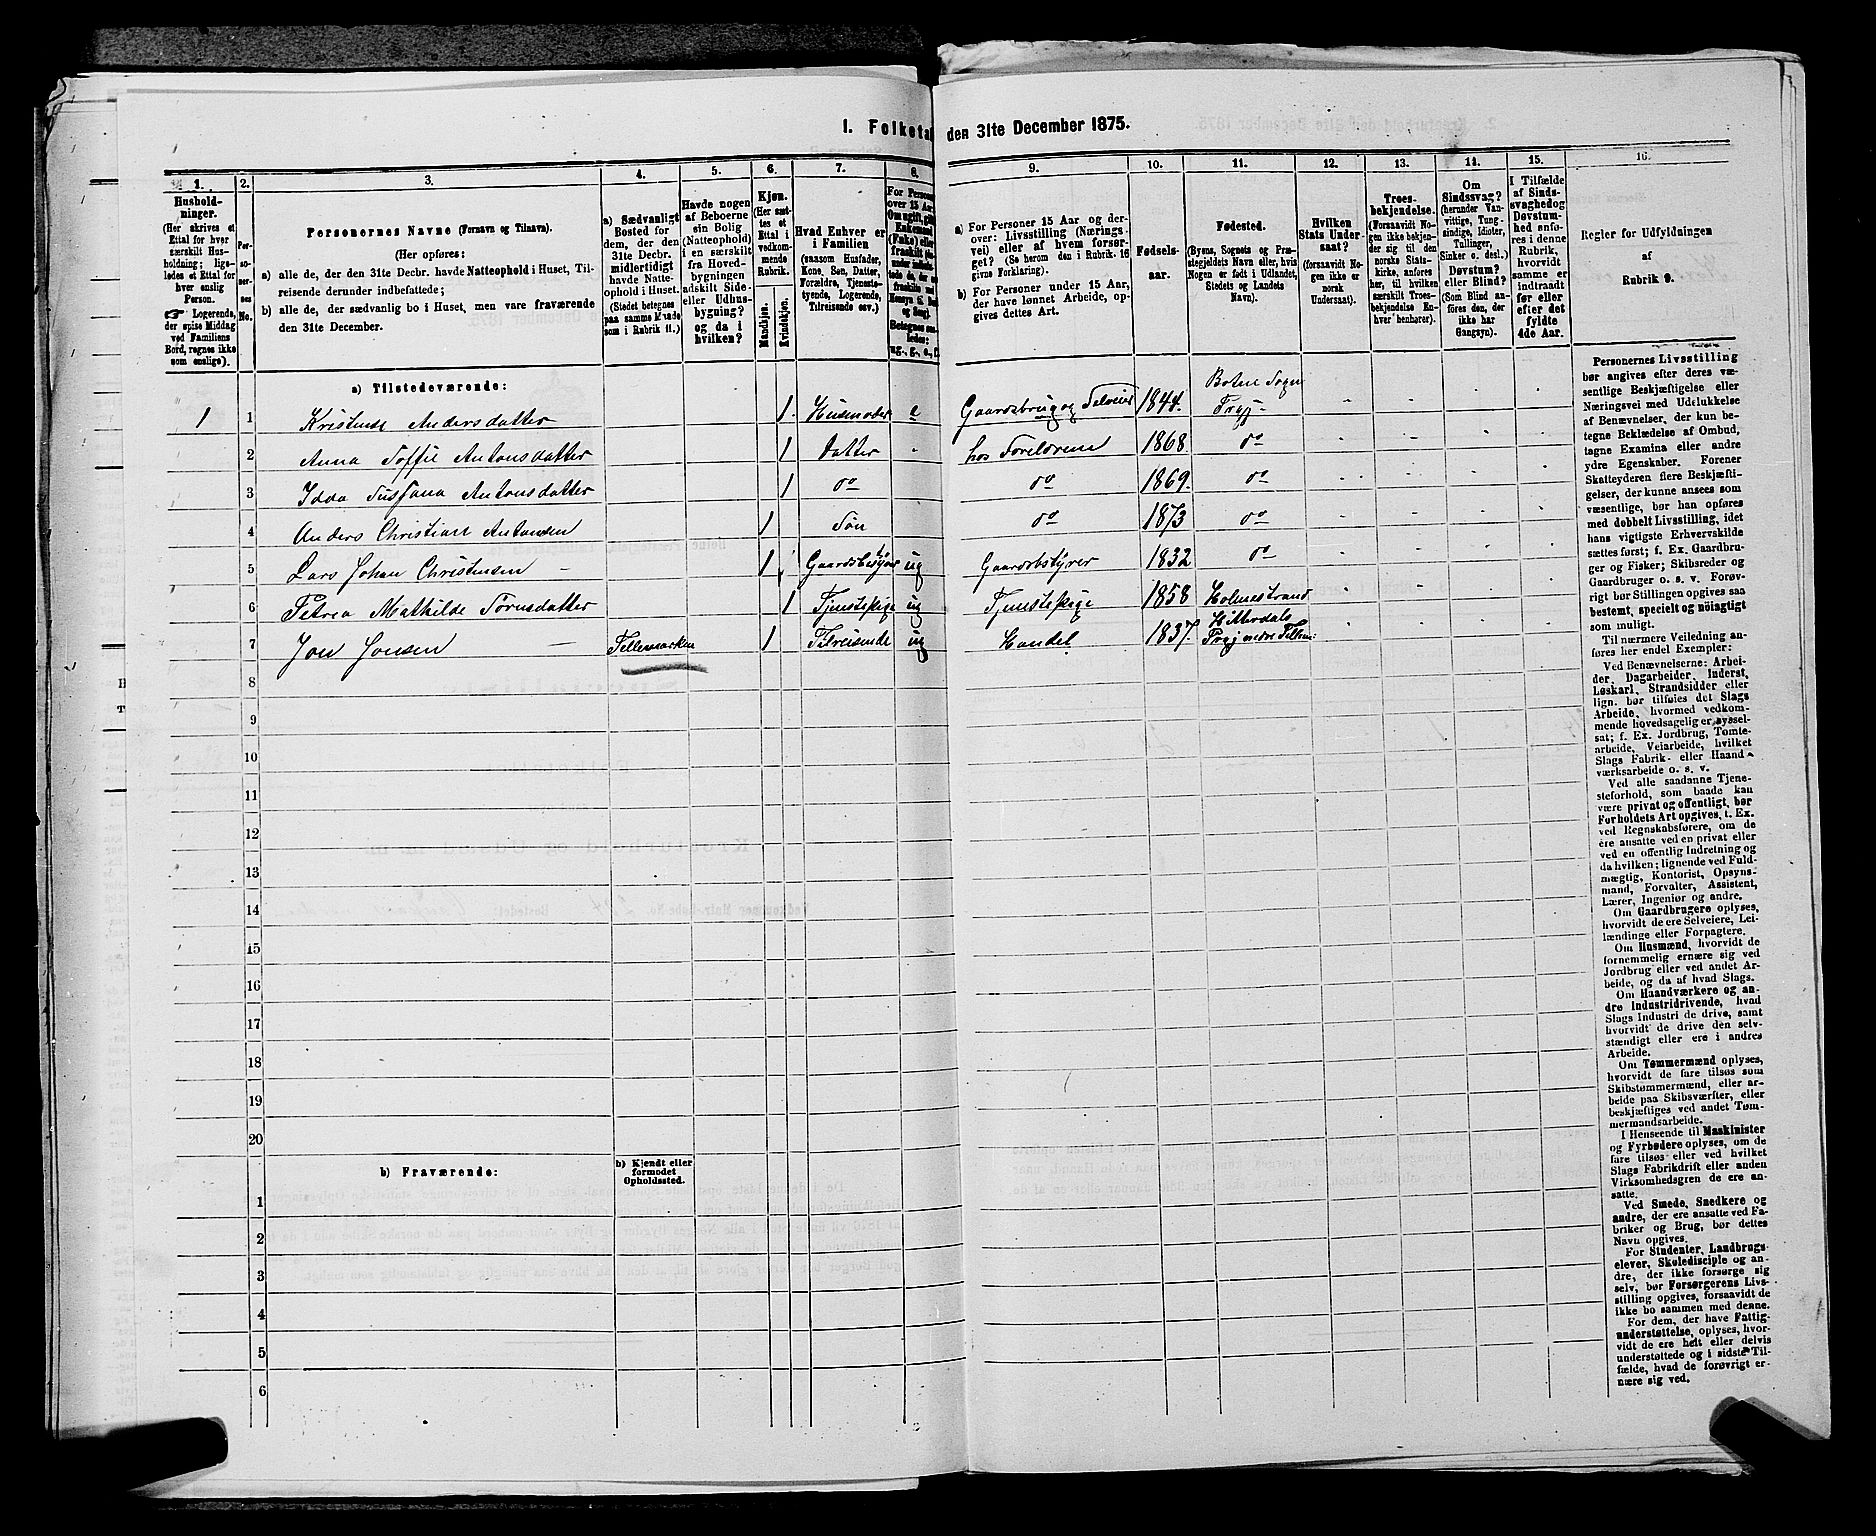 I. Folketal den 31te December 1875.
1. 2. 3. 4. 5. 6. 7. 8. 9. 10. 11. 12. 13. 14. 15. 16.
Husholdninger.
(Her skrives et
Ettal for hver
særskilt Husholdning; ligeledes
et Ettal for
hver enslig
Person.
☛ Logerende,
der spise Middag
ved Familiens
Bord, regnes ikke
som enslige).
Personernes No.
Personernes Navne (Fornavn og Tilnavn).
(Her opføres:
a) alle de, der den 31te Decbr. havde Natteophold i Huset, Tilreisende
derunder indbefattede;
b) alle de, der sædvanlig bo i Huset, men vare fraværende
den 31te December.
a) Sædvanligt
Bosted for
dem, der den
31te Decbr.
midlertidigt
havde Natteophold
i Huset.
(Stedet betegnes
paa samme Maade
som i Rubrik 11.)
Havde nogen
af Beboerne
sin Bolig
(Natteophold)
i en særskilt
fra Hovedbygningen
adskilt Side-
eller Udhusbygning?
og da i
hvilken?
Kjøn.
(Her sættes
et
Ettal i
vedkommende
Rubrik.
Mandkjøn.
Kvindekjøn.
Hvad Enhver er
i Familien
(saasom Husfader,
Kone, Søn, Datter,
Forældre, Tjenestetyende,
Logerende,
Tilreisende osv.)
For Personer
over 15 Aar:
a) For Personer 15 Aar og derover:
Livsstilling (Næringsvei)
eller af hvem forsørget?
(Se herom den i Rubrik 16
givne Forklaring).
b) For Personer under 15 Aar,
der have lønnet Arbeide, opgives
dettes Art.
Fødselsaar.
Fødested.
(Byens, Sognets og Præstegjeldets
Navn eller, hvis
Nogen er født i Udlandet,
Stedets og Landets
Navn).
Hvilken
Stats Undersaat?
(forsaavidt Nogen
ikke er
norsk
Undersaat).
Troesbekjendelse.
(Forsaavidt Nogen
ikke bekjender
sig til den
norske Statskirke,
anføres
her, til hvilken
særskilt Troesbekjendelse
Enhver
henhører).
Om
Sindssvag?
(herunder Vanvittige,
Tungsindige,
Idioter,
Tullinger,
Sinker o. desl.)
Døvstum?
eller Blind?
(Som Blind anføres
den, der
ikke har
Gangsyn).
I Tilfælde
af Sindssvaghed
og
Døvstumhed
anføres
i denne
Rubrik,
hvorvidt
samme er
indtraadt
før eller
efter det
fyldte
4de Aar.
Regler for Udfyldningen
af
Rubrik 9.
a) Tilstedeværende:
1 1 Kristine Andersdatter 1 Husmoder e Gaardsbrug og Selveier 1844. Botne Sogn
Prgj
2 Anna Soffie Antonsdatter 1 Datter - hos Forældrene 1868 do
3 Idda Sussana Antonsdatter 1 do do 1869. do
4 Anders Christian Antonsen 1 Søn do 1873 do
5 Lars Johan Christensen - 1 Gaardsbestyrer ug Gaardsbstyrer 1832 do
6 Petrea Mathilde Sørnsdatter 1 Tjenstepige ug Tjenstepige 1858 Holmestrand
7 Jon Jonsen - Tellemarken 1 Tilreisende ug Handel 1837. Hitterdals
Prgj nedre Tellem:
8
9
10
11
12
13
14
15
16
17
18
19
20
b) Fraværende: b) Kjendt eller
formodet
Opholdssted.
1
2
3
4
5
6
Personernes Livsstilling
bør angives efter deres væsentlige
Beskjæftigelse eller
Næringsvei med Udelukkelse
af Benævnelser, der kun betegne
Beklædelse af Ombud,
tagne Examina eller andre
ydre Egenskaber. Forener
Skatteyderen flere Beskjæftigelser,
der kunne ansees som
væsentlige, bør han opføres
med dobbelt Livsstilling, idet
hans vigtigste Erhvervskilde
sættes først; f. Ex. Gaardbruger
og Fisker; Skibsreder og
Gaardbruger o. s. v. Forøvrigt
bør Stillingen opgives saa
bestemt, specielt og nøiagtigt
som muligt.
Til nærmere Veiledning anføres
her endel Exempler:
Ved Benævnelserne: Arbeider,
Dagarbeider, Inderst,
Løskarl, Strandsidder eller
lign. bør tilføies det Slags
Arbeide, hvormed vedkommende
hovedsagelig er sysselsat;
f. Ex. Jordbrug, Tomtearbeide,
Veiarbeide, hvilket
Slags Fabrik- eller Haandværksarbeide
o. s. v.
Ved alle saadanne Tjenesteforhold,
som baade kan
være privat og offentligt, bør
Forholdets Art opgives, t. Ex.
ved Regnskabsførere, om de
ere ansatte ved en privat eller
ved en offentlig Indretning og
da hvilken; lignende ved Fuldmægtig,
Kontorist, Opsynsmand,
Forvalter, Assistent,
Lærer, Ingeniør og andre.
Om Gaardbrugere oplyses,
hvorvidt de ere Selveiere, Leilændinge
eller Forpagtere.
Om Husmænd, hvorvidt de
fornemmelig ernære sig ved
Jordbrug eller ved andet Arbeide,
og da af hvad Slags.
Om Haandværkere og andre
Industridrivende, hvad
Slags Industri de drive, samt
hvorvidt de drive den selvstændigt
eller ere i andres
Arbeide.
Om Tømmermænd oplyses,
hvorvidt de fare tilsøs som
Skibstømmermænd, eller arbeide
paa Skibsværfter, eller
beskjæftiges ved andet Tømmermandsarbeide.
I Henseende til Maskinister
og Fyrbødere oplyses, om de
fare tilsøs eller ved hvilket
Slags Fabrikdrift eller anden
Virksomhedsgren de ere ansatte.
Ved Smede, Snedkere og
andre, der ere ansatte ved Fabriker
og Brug, bør dettes
Navn opgives.
For Studenter, Landbrugselever,
Skoledisciple og andre,
der ikke forsørge sig
selv, bør Forsørgerens Livsstilling
opgives, forsaavidt de
ikke bo sammen med denne.
For dem, der have Fattigunderstøttelse,
oplyses, hvorvidt
de ere helt eller delvis
understøttede og i sidste Tilfælde,
hvad de forøvrigt ernære
sig ved.